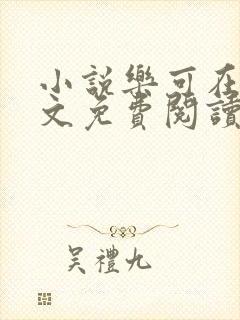 小説樂可在
文免費閱讀
吳禮九